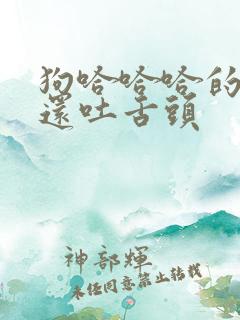 狗哈哈哈的
還吐舌頭
神部輝
未經同意禁止轉載